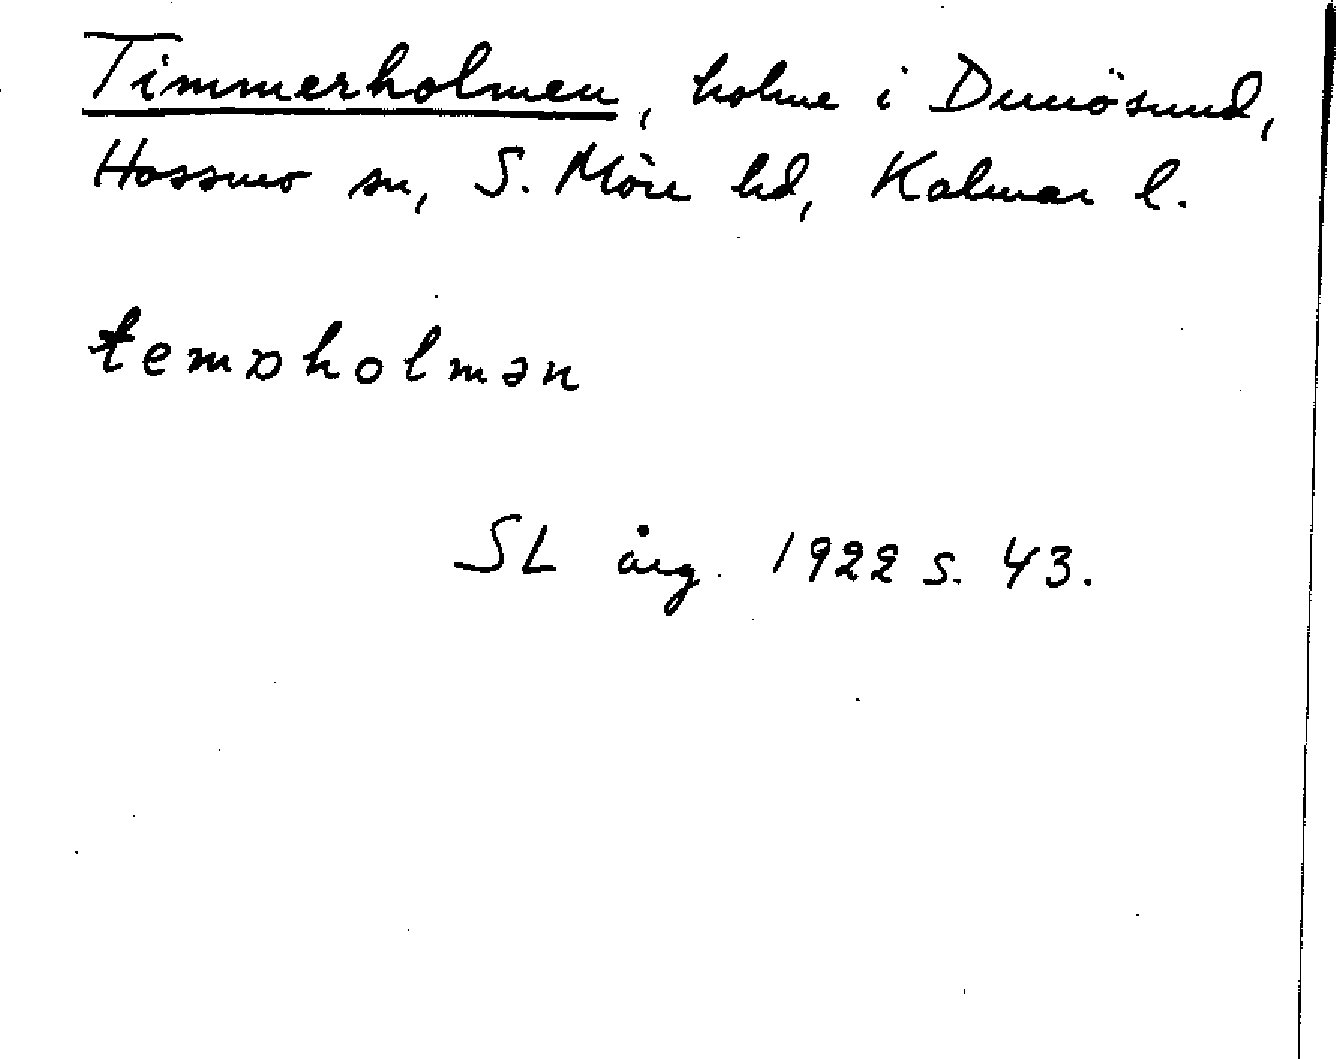 Timmerholmen, holme i Dunösund,
Hossmo sn, S. Möre hd, Kalmar l.
temɒholmən
SL årg. 1922 s. 43.